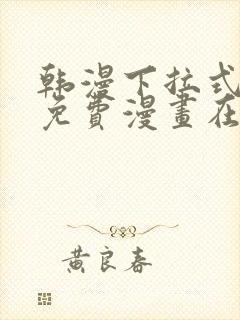 韩漫下拉式
免費漫畫在
黄良春